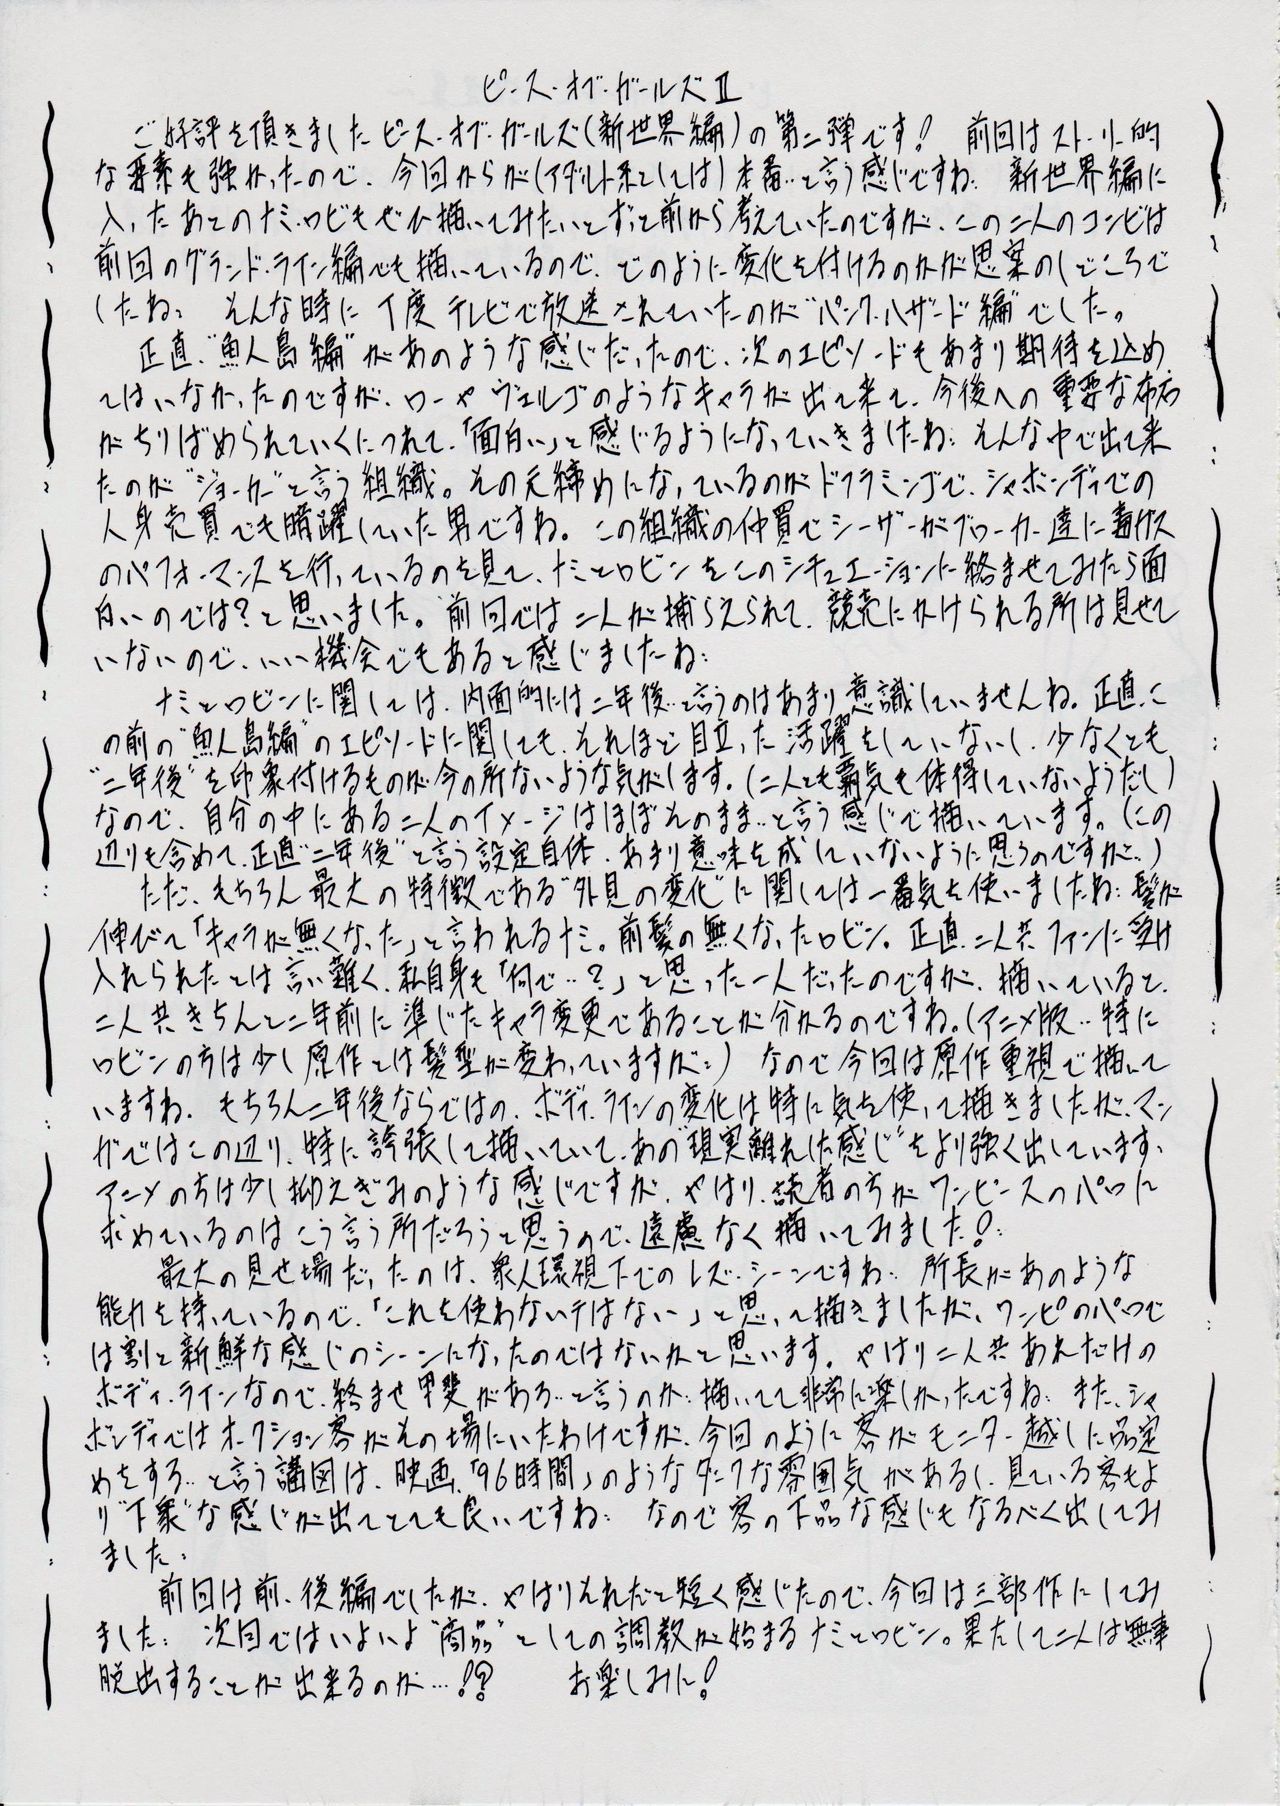 ピース・オブ・ガールズⅡ
ご好評を頂きましたピース・オブ・ガールズ(新世界編)の第二弾です! 前回はストーリー的
な要素も強かったので、今回からが(アダルト系としては)本番‥と言う感じですね。 新世界編に
入ったあとのナミ・ロビもぜひ描いてみたいとずっと前から考えていたのですが、この二人のコンビは
前回のグランド・ライン編でも描いているので、どのように変化を付けるのかが思案のしどころで
したね。 そんな時に丁度テレビで放送されていたのが“パンク・ハザード編”でした。
正直、“魚人島編”があのような感じだったので、次のエピソードもあまり期待を込め
てはいなかったのですが、ローやヴェルゴのようなキャラが出て来て、今後への重要な布石
がちりばめられていくにつれて、「面白い」と感じるようになっていきましたね。そんな中で出て来
たのが“ジョーカー”と言う組織。その元締めになっているのがドフラミンゴで、シャボンディでの
人身売買でも暗躍していた男ですね。この組織の仲買でシーザーがブローカー達に毒ガス
のパフォーマンスを行っているのを見て、ナミとロビンをこのシチュエーションに絡ませてみたら面
白いのでは?と思いました。前回では二人が捕らえられて、競売にかけられる所は見せて
いないので、いい機会でもあると感じましたね。
ナミとロビンに関しては、内面的には二年後‥と言うのはあまり意識していませんね。正直、こ
の前の“魚人島編”のエピソードに関しても、それほど目立った活躍をしていないし、少なくとも
“二年後”を印象付けるものが今の所ないような気がします。(二人とも覇気も体得していないようだし)
なので、自分の中にある二人のイメージはほぼそのまま‥と言う感じで描いています。(この
辺りも含めて、正直“二年後”と言う設定自体、あまり意味を成していないように思うのですが‥)
ただ、もちろん最大の特徴である“外見の変化”に関しては一番気を使いましたね。髪が
伸びて「キャラが無くなった」と言われるナミ。前髪の無くなったロビン。正直、二人共ファンに受け
入れられたとは言い難く、私自身も「何で‥?」と思った一人だったのですが、描いていると、
二人共きちんと二年前に準じたキャラ変更であることが分かるのですね。(アニメ版‥特に
ロビンの方は少し原作とは髪型が変わっていますが‥) なので今回は原作重視で描いて
いますね。 もちろん二年後ならではの、ボディ・ラインの変化は特に気を使って描きましたが、マン
ガではこの辺り、特に誇張して描いていて、あの“現実離れした感じ”をより強く出しています。
アニメの方は少し抑えぎみのような感じですが、やはり、読者の方がワンピースのパロに
求めているのはこう言う所だろうと思うので、遠慮なく描いてみました!
最大の見せ場だったのは、衆人環視下でのレズ・シーンですね。 所長があのような
能力を持っているので、「これを使わないテはない」と思って描きましたが、ワンピのパロで
は割と新鮮な感じのシーンになったのではないかと思います。やはり二人共あれだけの
ボディ・ラインなので、絡ませ甲斐がある‥と言うのか、描いてて非常に楽しかったですね。 また、シャ
ボンディではオークション客がその場にいたわけですが、今回のように客がモニター越しに品定
めをする‥と言う構図は、映画、「96時間」のようなダークな雰囲気があるし、見ている客もよ
り“下衆”な感じが出てとても良いですね。 なので客の下品な感じもなるべく出してみ
ました。
前回は前、後編でしたが、やはりそれだと短く感じたので、今回は三部作にしてみ
ました。 次回ではいよいよ“商品”としての調教が始まるナミとロビン。果たして二人は無事
脱出することが出来るのか…!? お楽しみに!